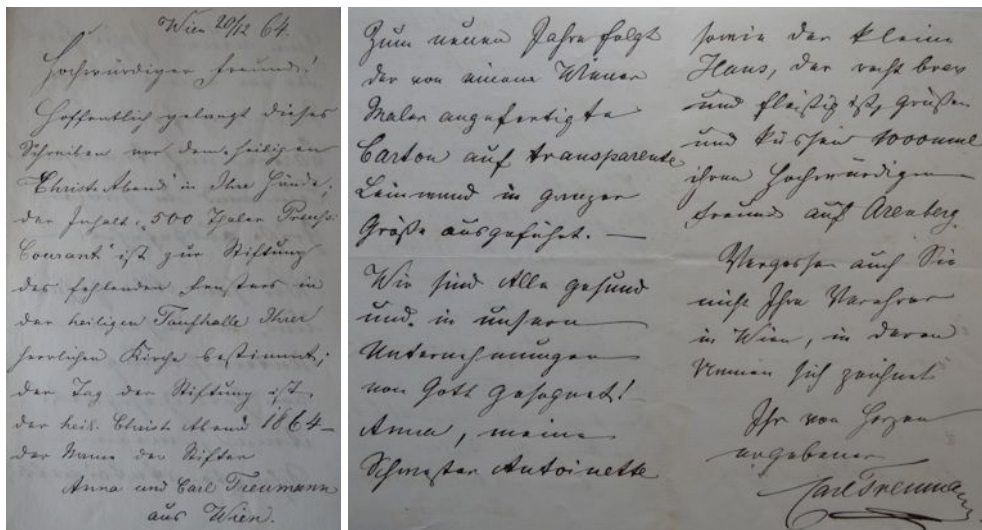 Wien 20/12 64.
Hochwürdiger Freund!
Hoffentlich gelangt dieses
Schreiben vor dem heiligen
Christ Abend in Ihre Hände;
der Inhalt: 500 Thaler Preuß.
Courant ist zur Stiftung
des fehlenden Fensters in
der heiligen Taufhalle Ihrer
herrlichen Kirche bestimmt;
der Tag der Stiftung ist
der heil. Christ Abend 1864 –
der Name der Stifter
Anna und Carl Treumann
aus Wien.
Zum neuen Jahre folgt
der von einem Wiener
Maler angefertigte
Carton auf transparente
Leinwand in ganzer
Größe ausgeführt. —
Wir sind Alle gesund
und in unsern
Unternehmungen
von Gott gesegnet!
Anna, meine
Schwester Antoinette
sowie der kleine
Hans, der recht brav
und fleißig ist, grüßen
und küssen 1000mal
ihren Hochwürdigen
Freund auf Arenberg.
Vergessen auch Sie
nicht Ihre Verehrer
in Wien, in deren
Namen sich zeichnet
Ihr von Herzen
ergebener
Carl Treumann